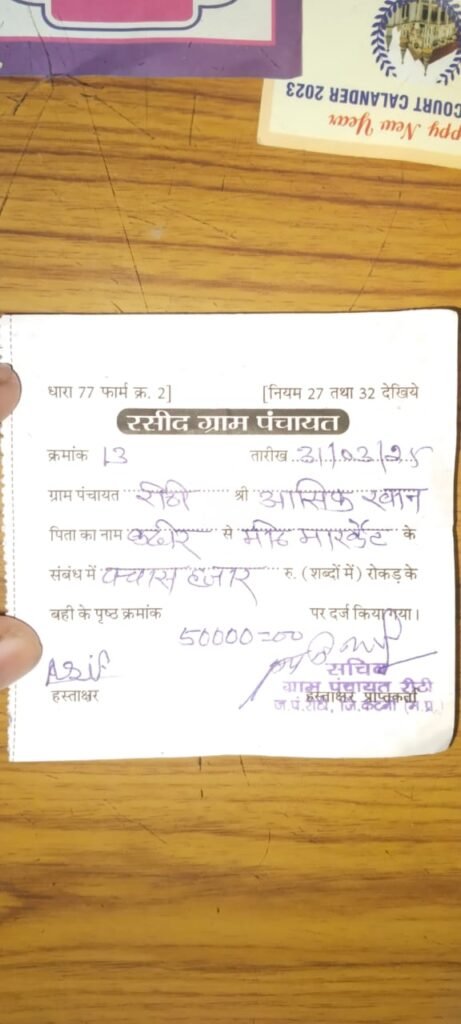 COURT CALANDER 2023
ppy New Year
धारा 77 फार्म क्र. 2] [नियम 27 तथा 32 देखिये
रसीद ग्राम पंचायत
क्रमांक 13 तारीख 31/03/25
ग्राम पंचायत रीठी श्री आसिफ खान
पिता का नाम से मीट मार्केट के
संबंध में पचास हजार रु. (शब्दों में) रोकड़ के
बही के पृष्ठ क्रमांक पर दर्ज किया गया।
50000=00
Asif
हस्ताक्षर
सचिव
ग्राम पंचायत रीठी
हस्ताक्षर प्राप्तकर्ता
ज.पं.रीठी, जि.कटनी (म.प्र.)